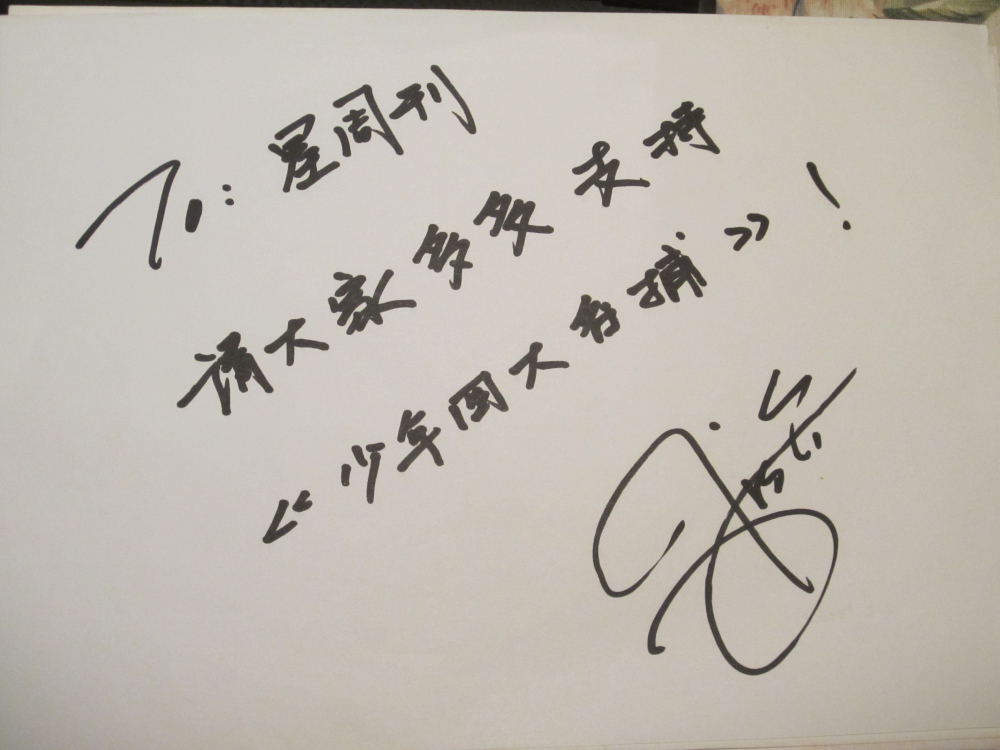 To: 星周刊
请大家多多支持
《少年团大存捕》!